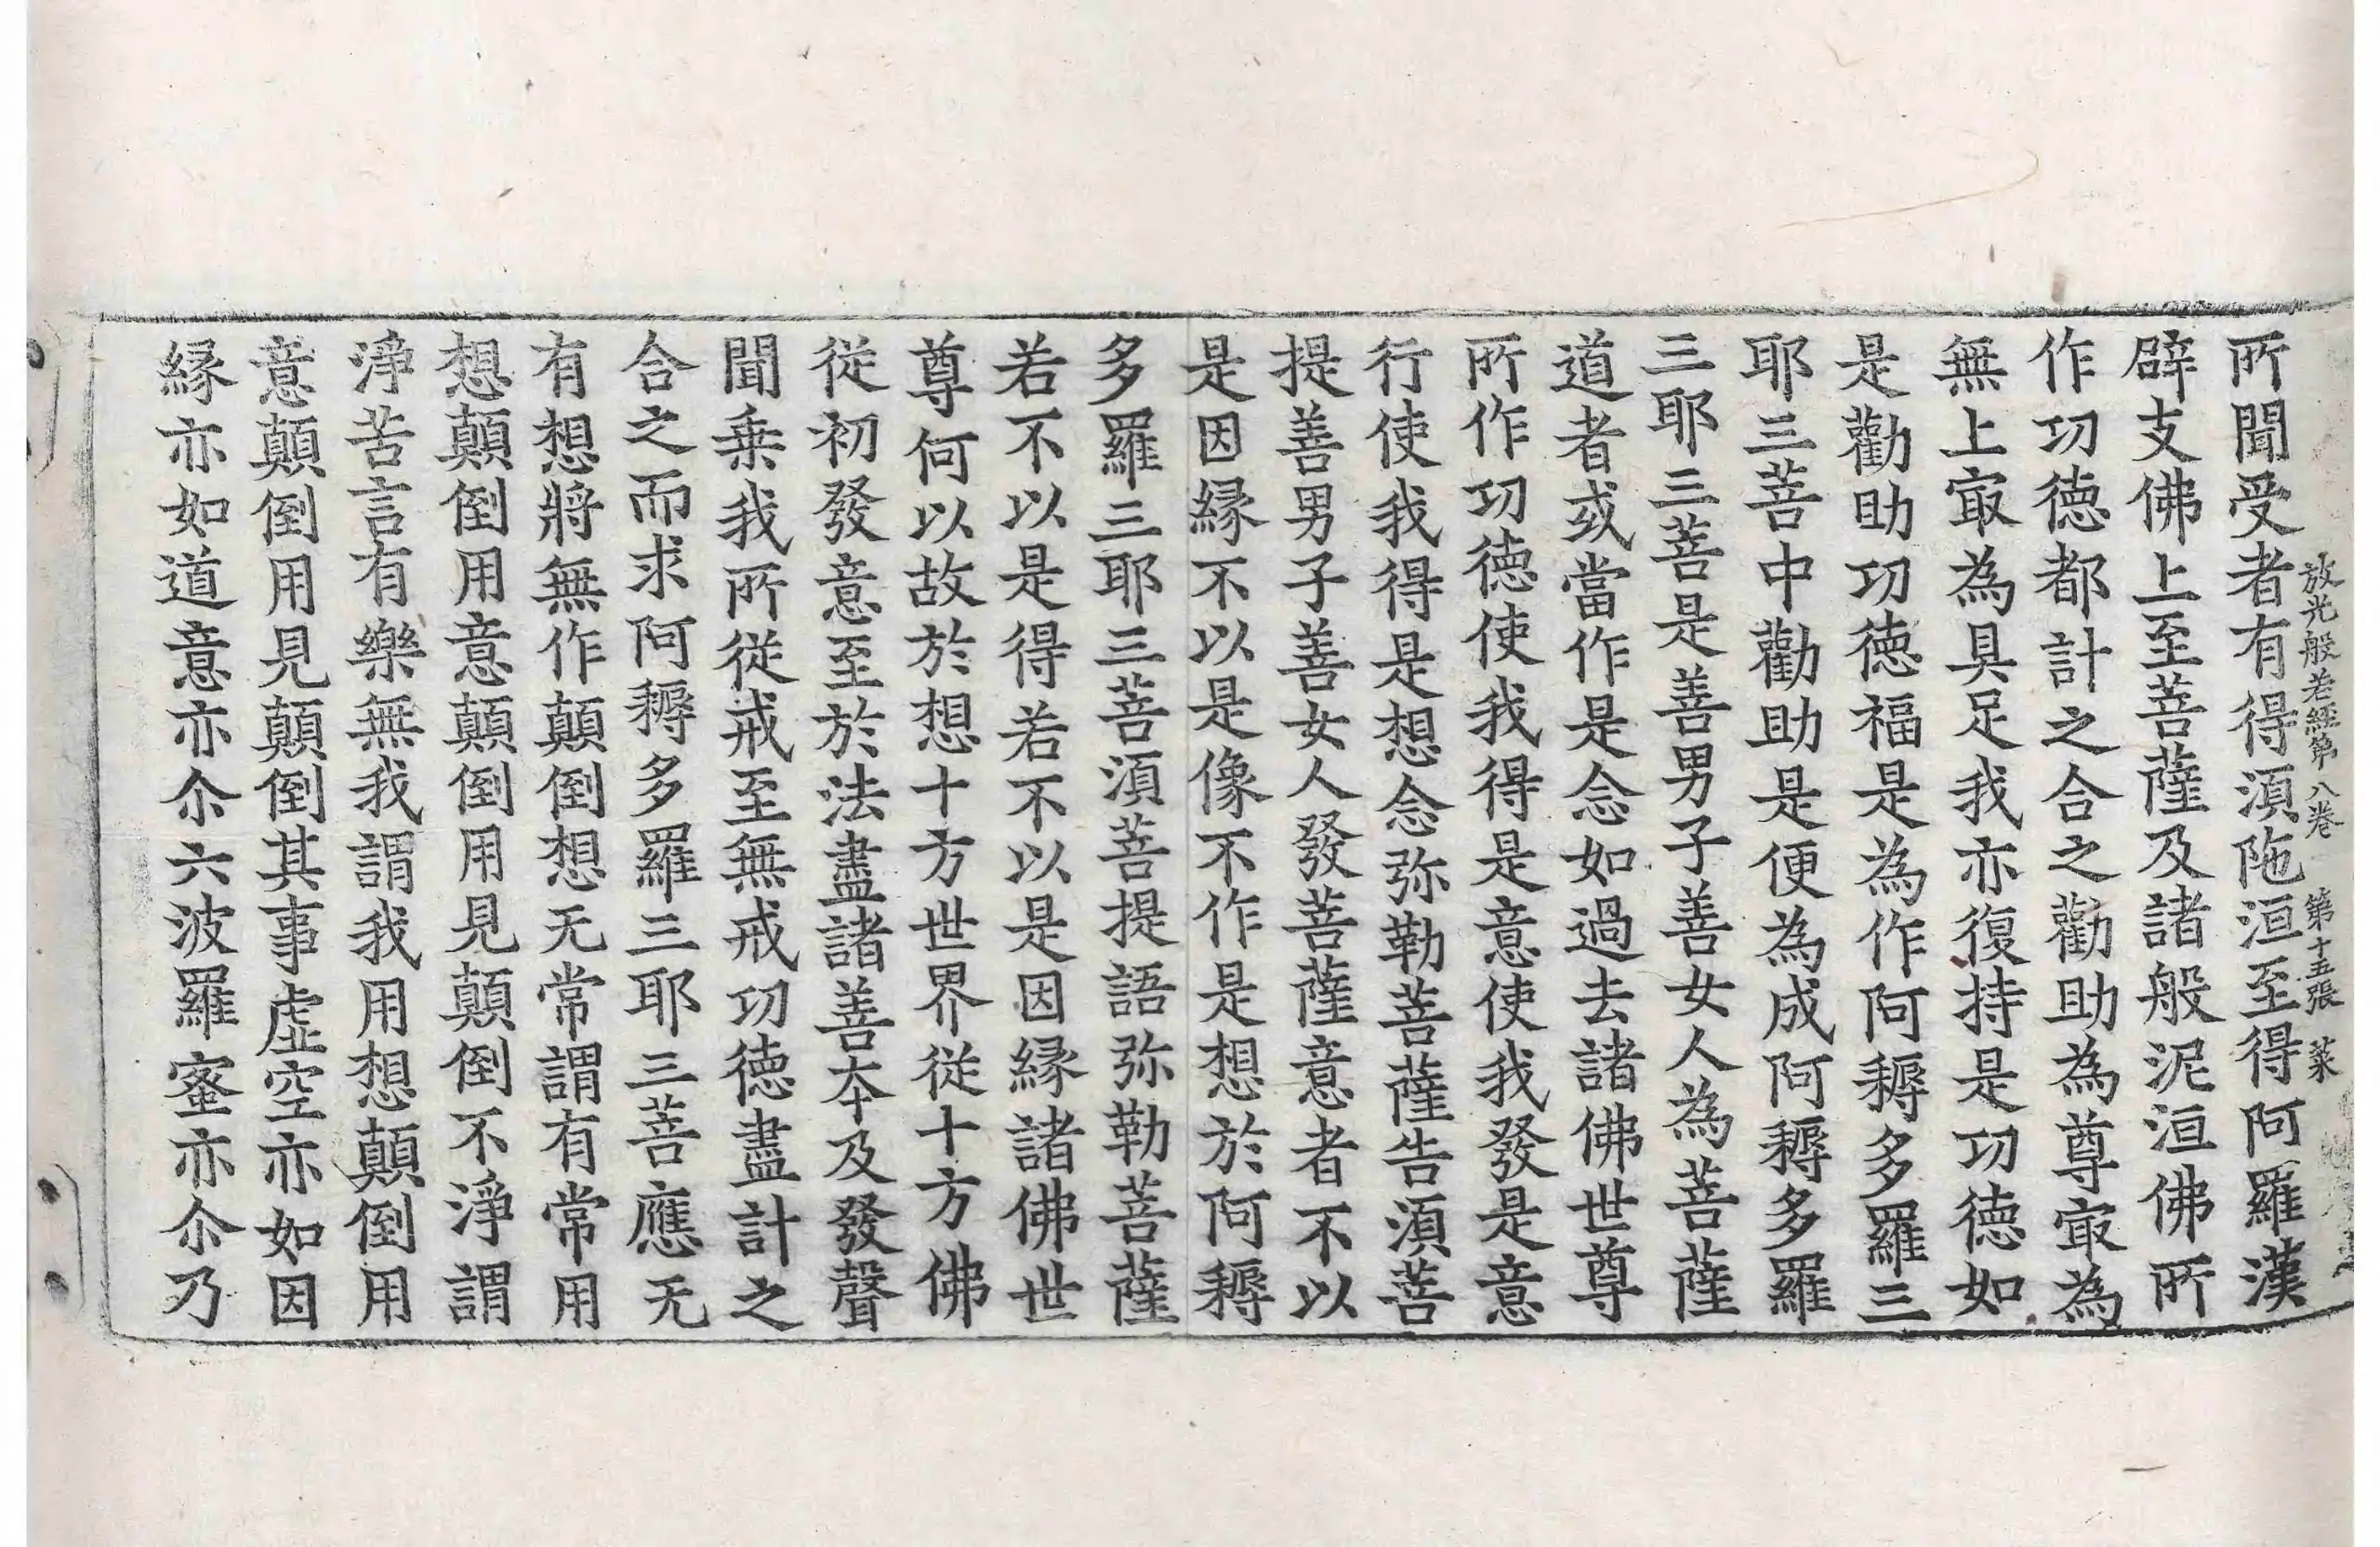 放光般若經第八卷 第十五張 菜
所聞受者有得湏陁洹至得阿羅漢
辟支佛上至菩薩及諸般泥洹佛所
作功德都計之合之勸助為尊㝡為
無上㝡為具足我亦復持是功德如
是勸助功德福是為作阿耨多羅三
耶三菩中勸助是便為成阿耨多羅
三耶三菩是善男子善女人為菩薩
道者或當作是念如過去諸佛世尊
所作功德使我得是意使我發是意
行使我得是想念弥勒菩薩告湏菩
提善男子善女人發菩薩意者不以
是因緣不以是像不作是想於阿耨
多羅三耶三菩湏菩提語弥勒菩薩
若不以是得若不以是因緣諸佛世
尊何以故於想十方世界從十方佛
從初發意至於法盡諸善本及發聲
聞乗我所從戒至無戒功德盡計之
合之而求阿耨多羅三耶三菩應无
有想將無作顛倒想无常謂有常用
想顛倒用意顛倒用見顛倒不淨謂
淨苦言有樂無我謂我用想顛倒用
意顛倒用見顛倒其事虛空亦如因
緣亦如道意亦尒六波羅蜜亦尒乃